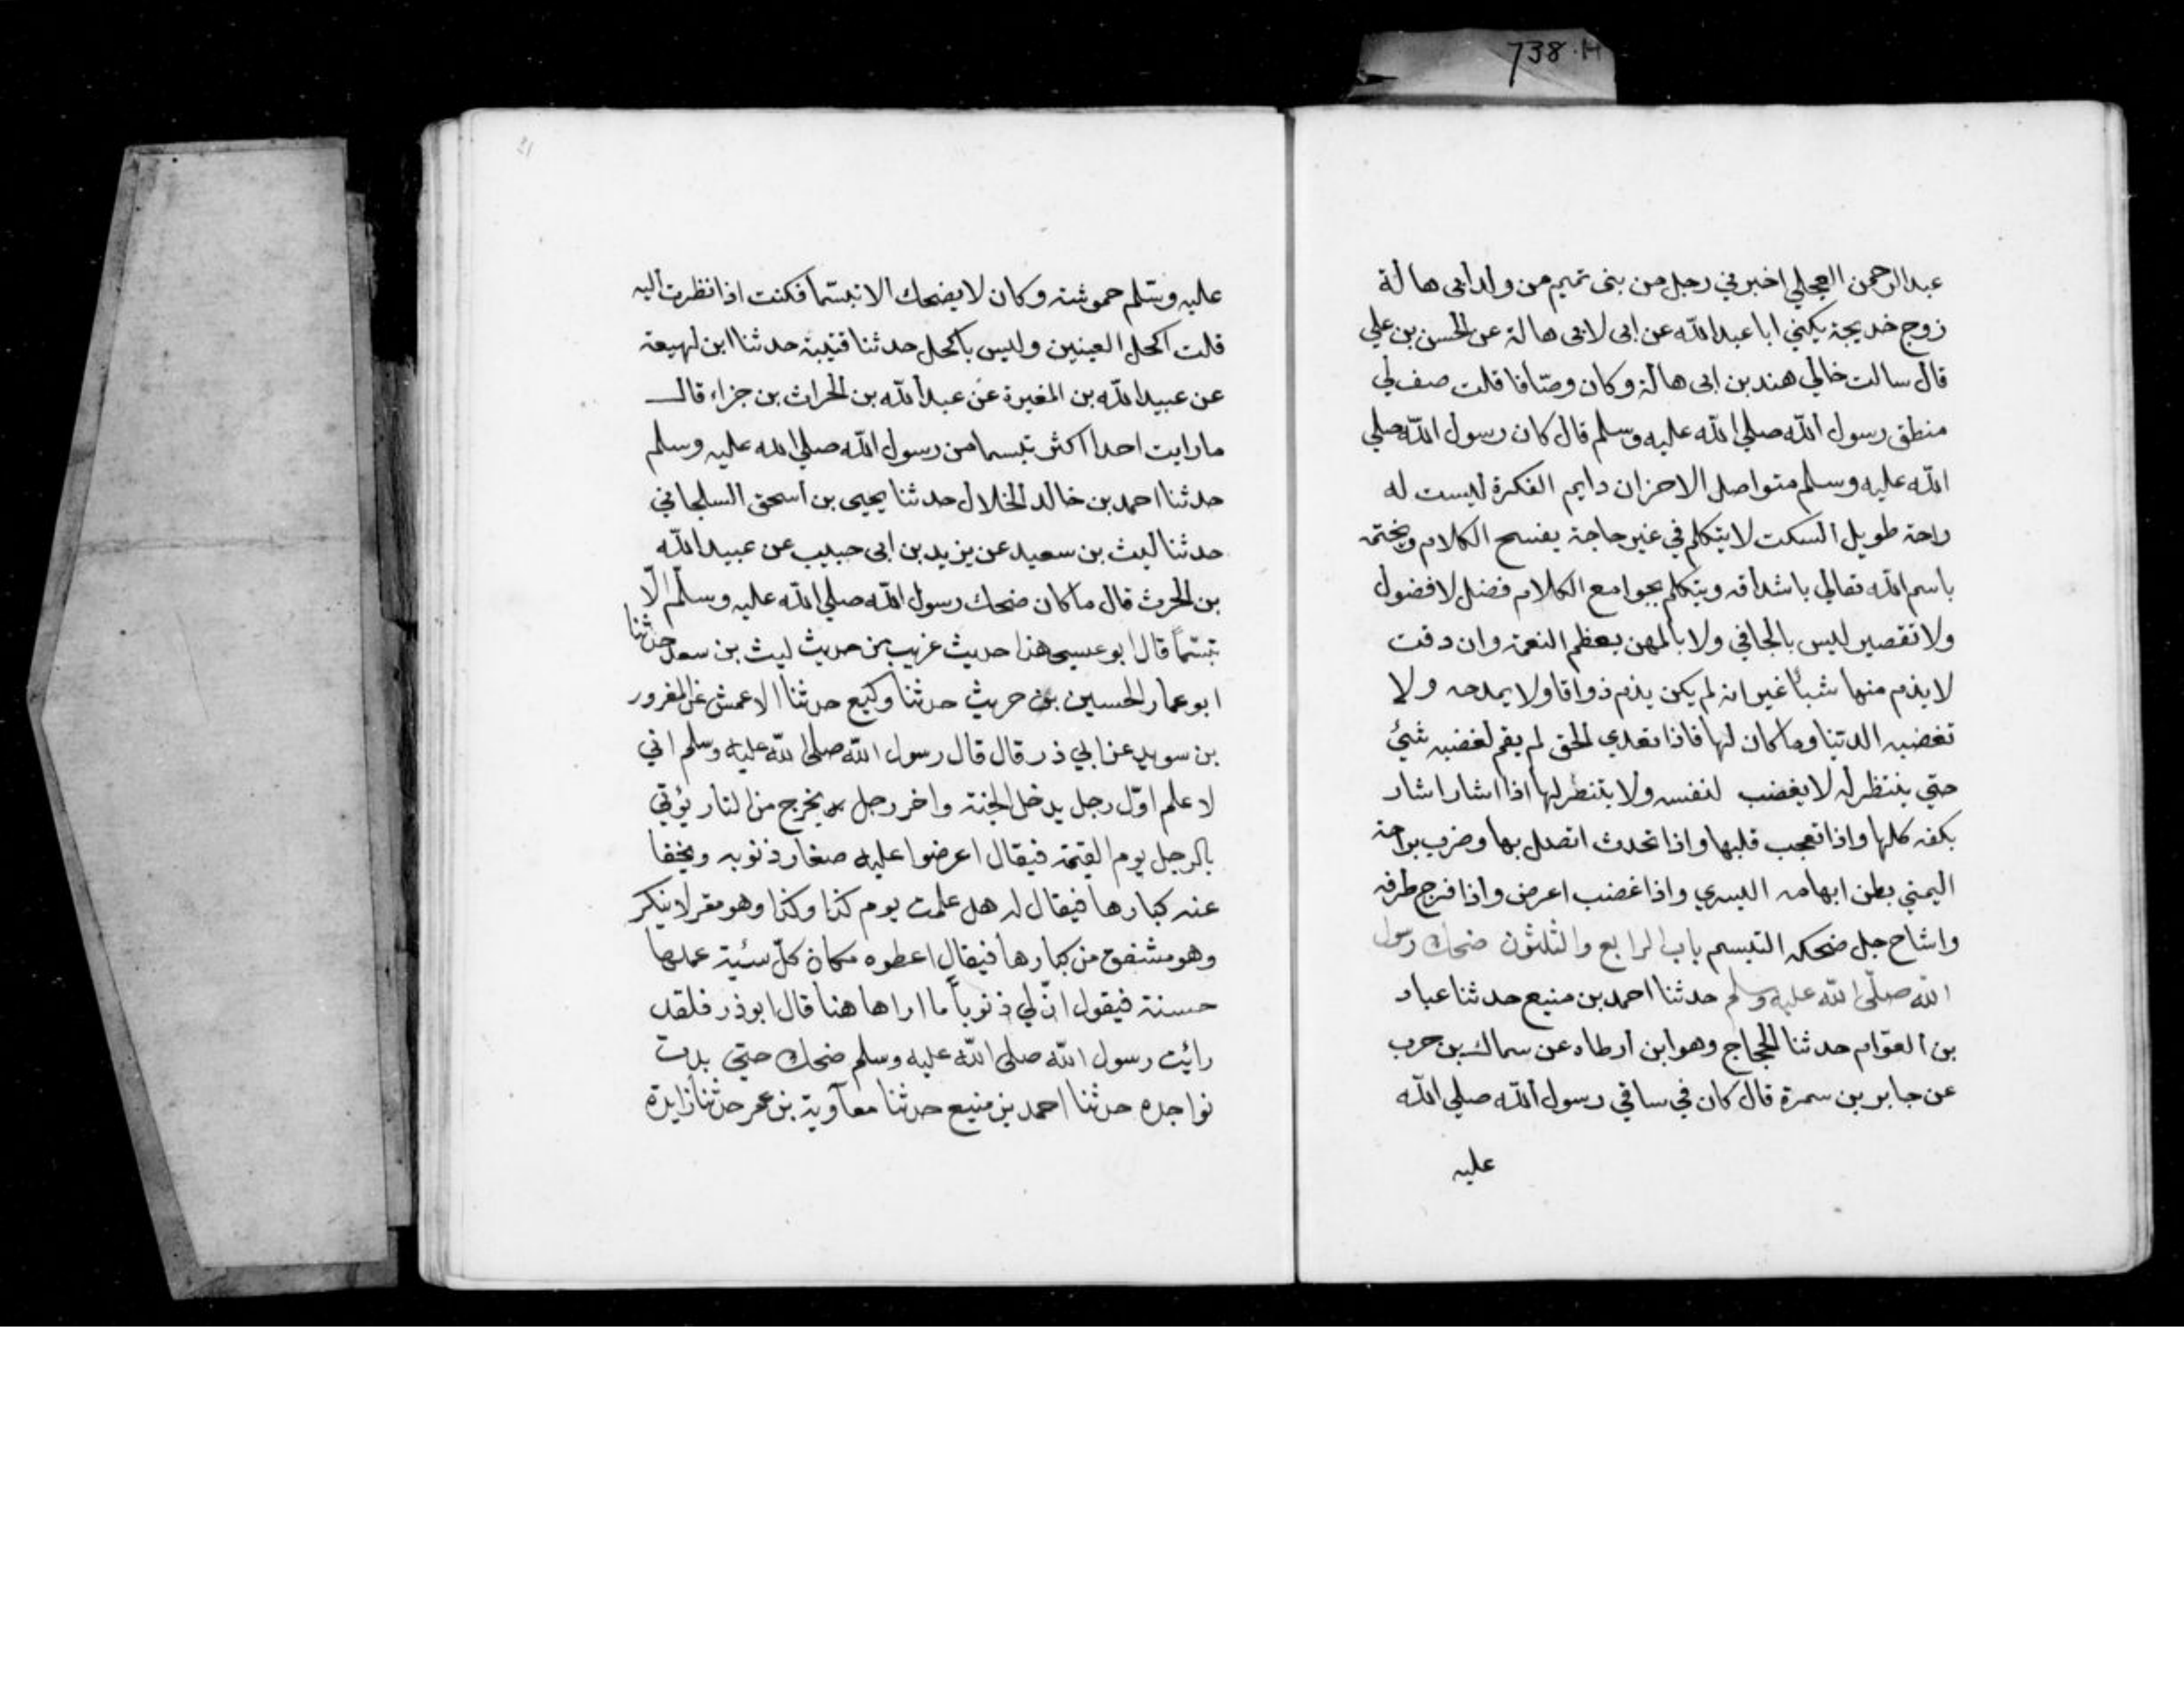 738.H
عبدالرحمن العجلي اخبرني رجل من بنى تميم من ولد ابى هالة
زوج خديجة يكني ابا عبدالله عن ابى لابى هالة عن الحسن بن علي
قال سالت خالي هند بن ابى هالة وكان وصّافا قلت صف لي
منطق رسول الله صلي الله عليه وسلم قال كان رسول الله صلي
الله عليه وسلم متواصل الاحزان دايم الفكرة ليست له
راحة طويل السكت لا يتكلم في غير حاجة يفتتح الكلام ويختمه
باسم الله تعالي باشداقه ويتكلم بجوامع الكلام فضل لا فضول
ولا تقصير ليس بالجافي ولا بالمهن يعظم النعمة وان دقت
لا يذم منها شيأ غير انه لم يكن يذم ذواقا ولا يمدحه ولا
تغضبه الدنيا وما كان لها فاذا تعدي الحق لم يقم لغضبه شئ
حتي ينتظر له لا يغضب لنفسه ولا ينتظر لها اذا اشار اشار
بكفه كلها واذا تعجب قلبها واذا تحدث اتصل بها وضرب براحة
اليمني بطن ابهامه اليسري واذا غضب اعرض واذا فرح طرفه
واشاح جل ضحكه التبسم باب الرابع والثلثون ضحك رسول
الله صلّى الله عليه وسلم حدثنا احمد بن منيع حدثنا عباد
بن العوّام حدثنا الحجاج وهو ابن ارطاه عن سماك بن حرب
عن جابر بن سمرة قال كان في ساقي رسول الله صلي الله
عليه
عليه وسلم حموشة وكان لا يضحك الا تبسّما فكنت اذا نظرت اليه
قلت اكحل العينين وليس باكحل حدثنا قتيبة حدثنا ابن لهيعة
عن عبيد الله بن المغيرة عن عبد الله بن الحراث بن جزاء قال
ما رايت احدا اكثر تبسما من رسول الله صلي الله عليه وسلم
حدثنا احمد بن خالد الخلال حدثنا يحيى بن اسحق السلحانى
حدثنا ليث بن سعيد عن يزيد بن ابى حبيب عن عبيد الله
بن الحرث قال ما كان ضحك رسول الله صلي الله عليه وسلّم الّا
تبسّماً قال ابو عيسى هذا حديث غريب من حديث ليث بن سعد حدثنا
ابو عمار الحسين بن حريث حدثنا وكيع حدثنا الاعمش عن المغرور
بن سويد عن ابي ذر قال قال رسول الله صلى الله عليه وسلم اني
لا علم اوّل رجل يدخل الجنة واخر رجل يخرج من النار يؤتي
بالرجل يوم القيمة فيقال اعرضوا عليه صغار ذنوبه ويخفا
عنه كبارها فيقال له هل علمت يوم كذا وكذا وهو مقر لا ينكر
وهو مشفق من كبارها فيقال اعطوه مكان كلّ سئية عملها
حسنة فيقول انّ لي ذنوباً ما اراها هنا قال ابو ذر فلقد
رائت رسول الله صلى الله عليه وسلم ضحك حتى بدت
نواجده حدثنا احمد بن منيع حدثنا معاوية بن عمر حدثنا زايدة